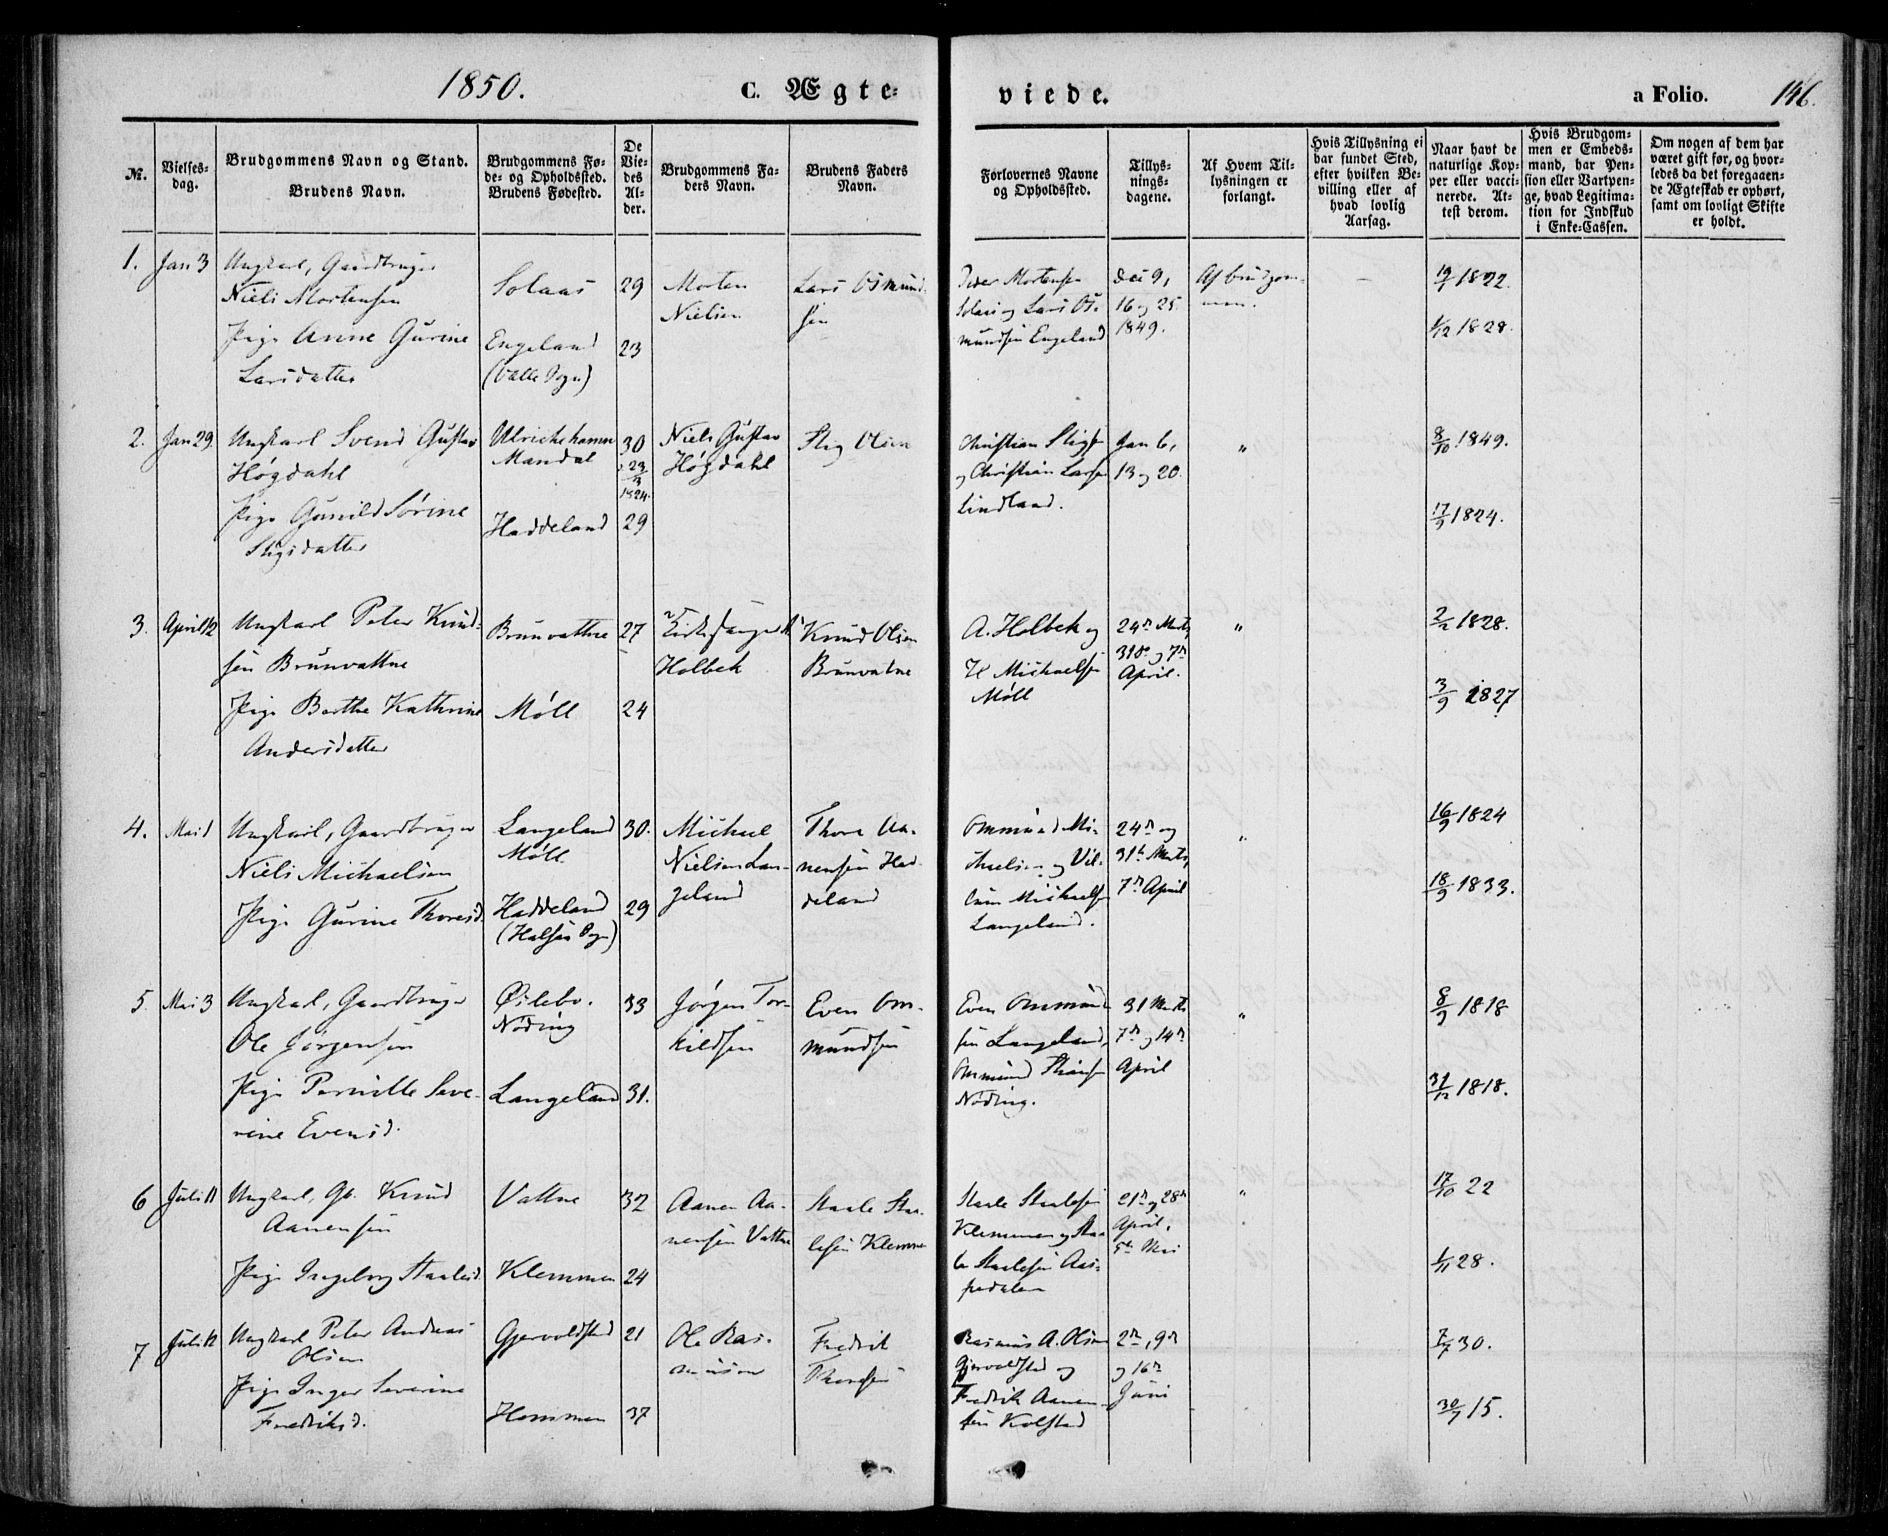 1850.
C. Ægte-
viede.
a Folio.
146.
№.
Vielses-
dag.
Brudgommens Navn og Stand.
Brudens Navn.
Brudgommens Fø-
de- og Opholdsted.
Brudens Fødested.
De
Vie-
des
Al-
der.
Brudgommens Fa-
ders Navn.
Brudens Faders
Navn.
Forlovernes Navne
og Opholdssted.
Tillys-
nings-
dagene.
Af Hvem Til-
lysningen er
forlangt.
Hvis Tillysning ei
har fundet Sted,
efter hvilken Be-
villing eller af
hvad lovlig
Aarsag.
Naar havt de
naturlige Kop-
per eller vacci-
nerede. At-
test derom.
Hvis Brudgom-
men er Embeds-
mand, har Pen-
sion eller Vartpen-
ge, hvad Legitima-
tion for Indskud
i Enke-Cassen.
Om nogen af dem har
været gift før, og hvor-
ledes da det foregaaen-
de Ægteskab er ophørt,
samt om lovligt Skifte
er holdt.
1.
Jan 3
Ungkarl, Gaardbruger
Niels Mortensen
Pige Anne Gurine
Larsdatter
Solaas
Engeland
(Valle Sogn)
29
23
Morten
Nielsen
Lars Osmund-
sen
Peder Mortensen
Solaas og Lars Os-
mundsen Engeland
Dec 9,
16 og 25
1849.
Af brudgom-
men.
–
19/1 1822.
1/12 1828.
2.
Jan 29.
Ungkarl Svend Gustav
Høgdahl
Pige Gunild Sørine
Stigsdatter
Ulrichehamn
Mandal
Haddeland
30
29
1824.
Niels Gustav
Høgdahl
Stig Olsen
Christian Stigs
og Christian Larsen
Lindland.
Jan 6,
13 og 20.
"
8/10 1849.
17/9 1824.
3.
April 12
Ungkarl Peter Knud-
sen Brunvattne
Pige Berthe Kathrine
Andersdatter
Brunvattne
Møll
27
24
Kirkesanger A
Holbek
Knud Olsen
Brunvatne
A. Holbek og
H Michaelsen
Møll
24de Marts,
31te og 7de
April.
"
2/12 1828.
3/9 1827
4.
Mai 1
Ungkarl, Gaardbruger
Niels Michaelsen
Pige Gurine Thoresd.
Langeland
Møll
Haddeland
(Halsaa Sogn)
30.
29
Michael
Nielsen Lan-
geland
Thore Aa-
nensen Had-
deland
Ommund Mi-
chaelsen og Vil-
lum Michaelsen
Langeland.
24de og
31te Marts,
7de April
"
16/9 1824
18/9 1833.
5.
Mai 3
Ungkarl, Gaardbruger
Ole Jørgensen
Pige Pernille Seve-
rine Evensd.
Øilebo.
Nøding
Langeland
33
31.
Jørgen Tor-
kildsen
Even Om-
mundsen
Even Ommund-
sen Langeland,
Ommund
Nøding.
31 Marts
7de og 14de
April
"
8/9 1818
31/12 1818.
6
Juli 11
Ungkarl, Gb. Knud
Aanensen
Pige Ingeborg Staalesd.
Vattne
Klemmen
32
24
Aanen Aa-
nensen Vattne
Staale Staa-
lesen Klemmen
Staale Staalesen
Klemmen og Staa-
le Staalesen Aas-
pedalen
21de og 28de
April,
5te Mai
"
17/10 22
1/11 28.
7
Juli 12
Ungkarl Peter Andreas
Olsen
Pige Inger Severine
Fredriksd.
Gjervoldstad
Hommen
21
37
Ole Ras-
mussen
Fredrik
Thoresen
Rasmus A. Olsen
Gjervoldstad og
Fredrik Aanen-
sen Kolstad
2de, 9de
og 16de
Juni
7/7 30.
30/7 15.